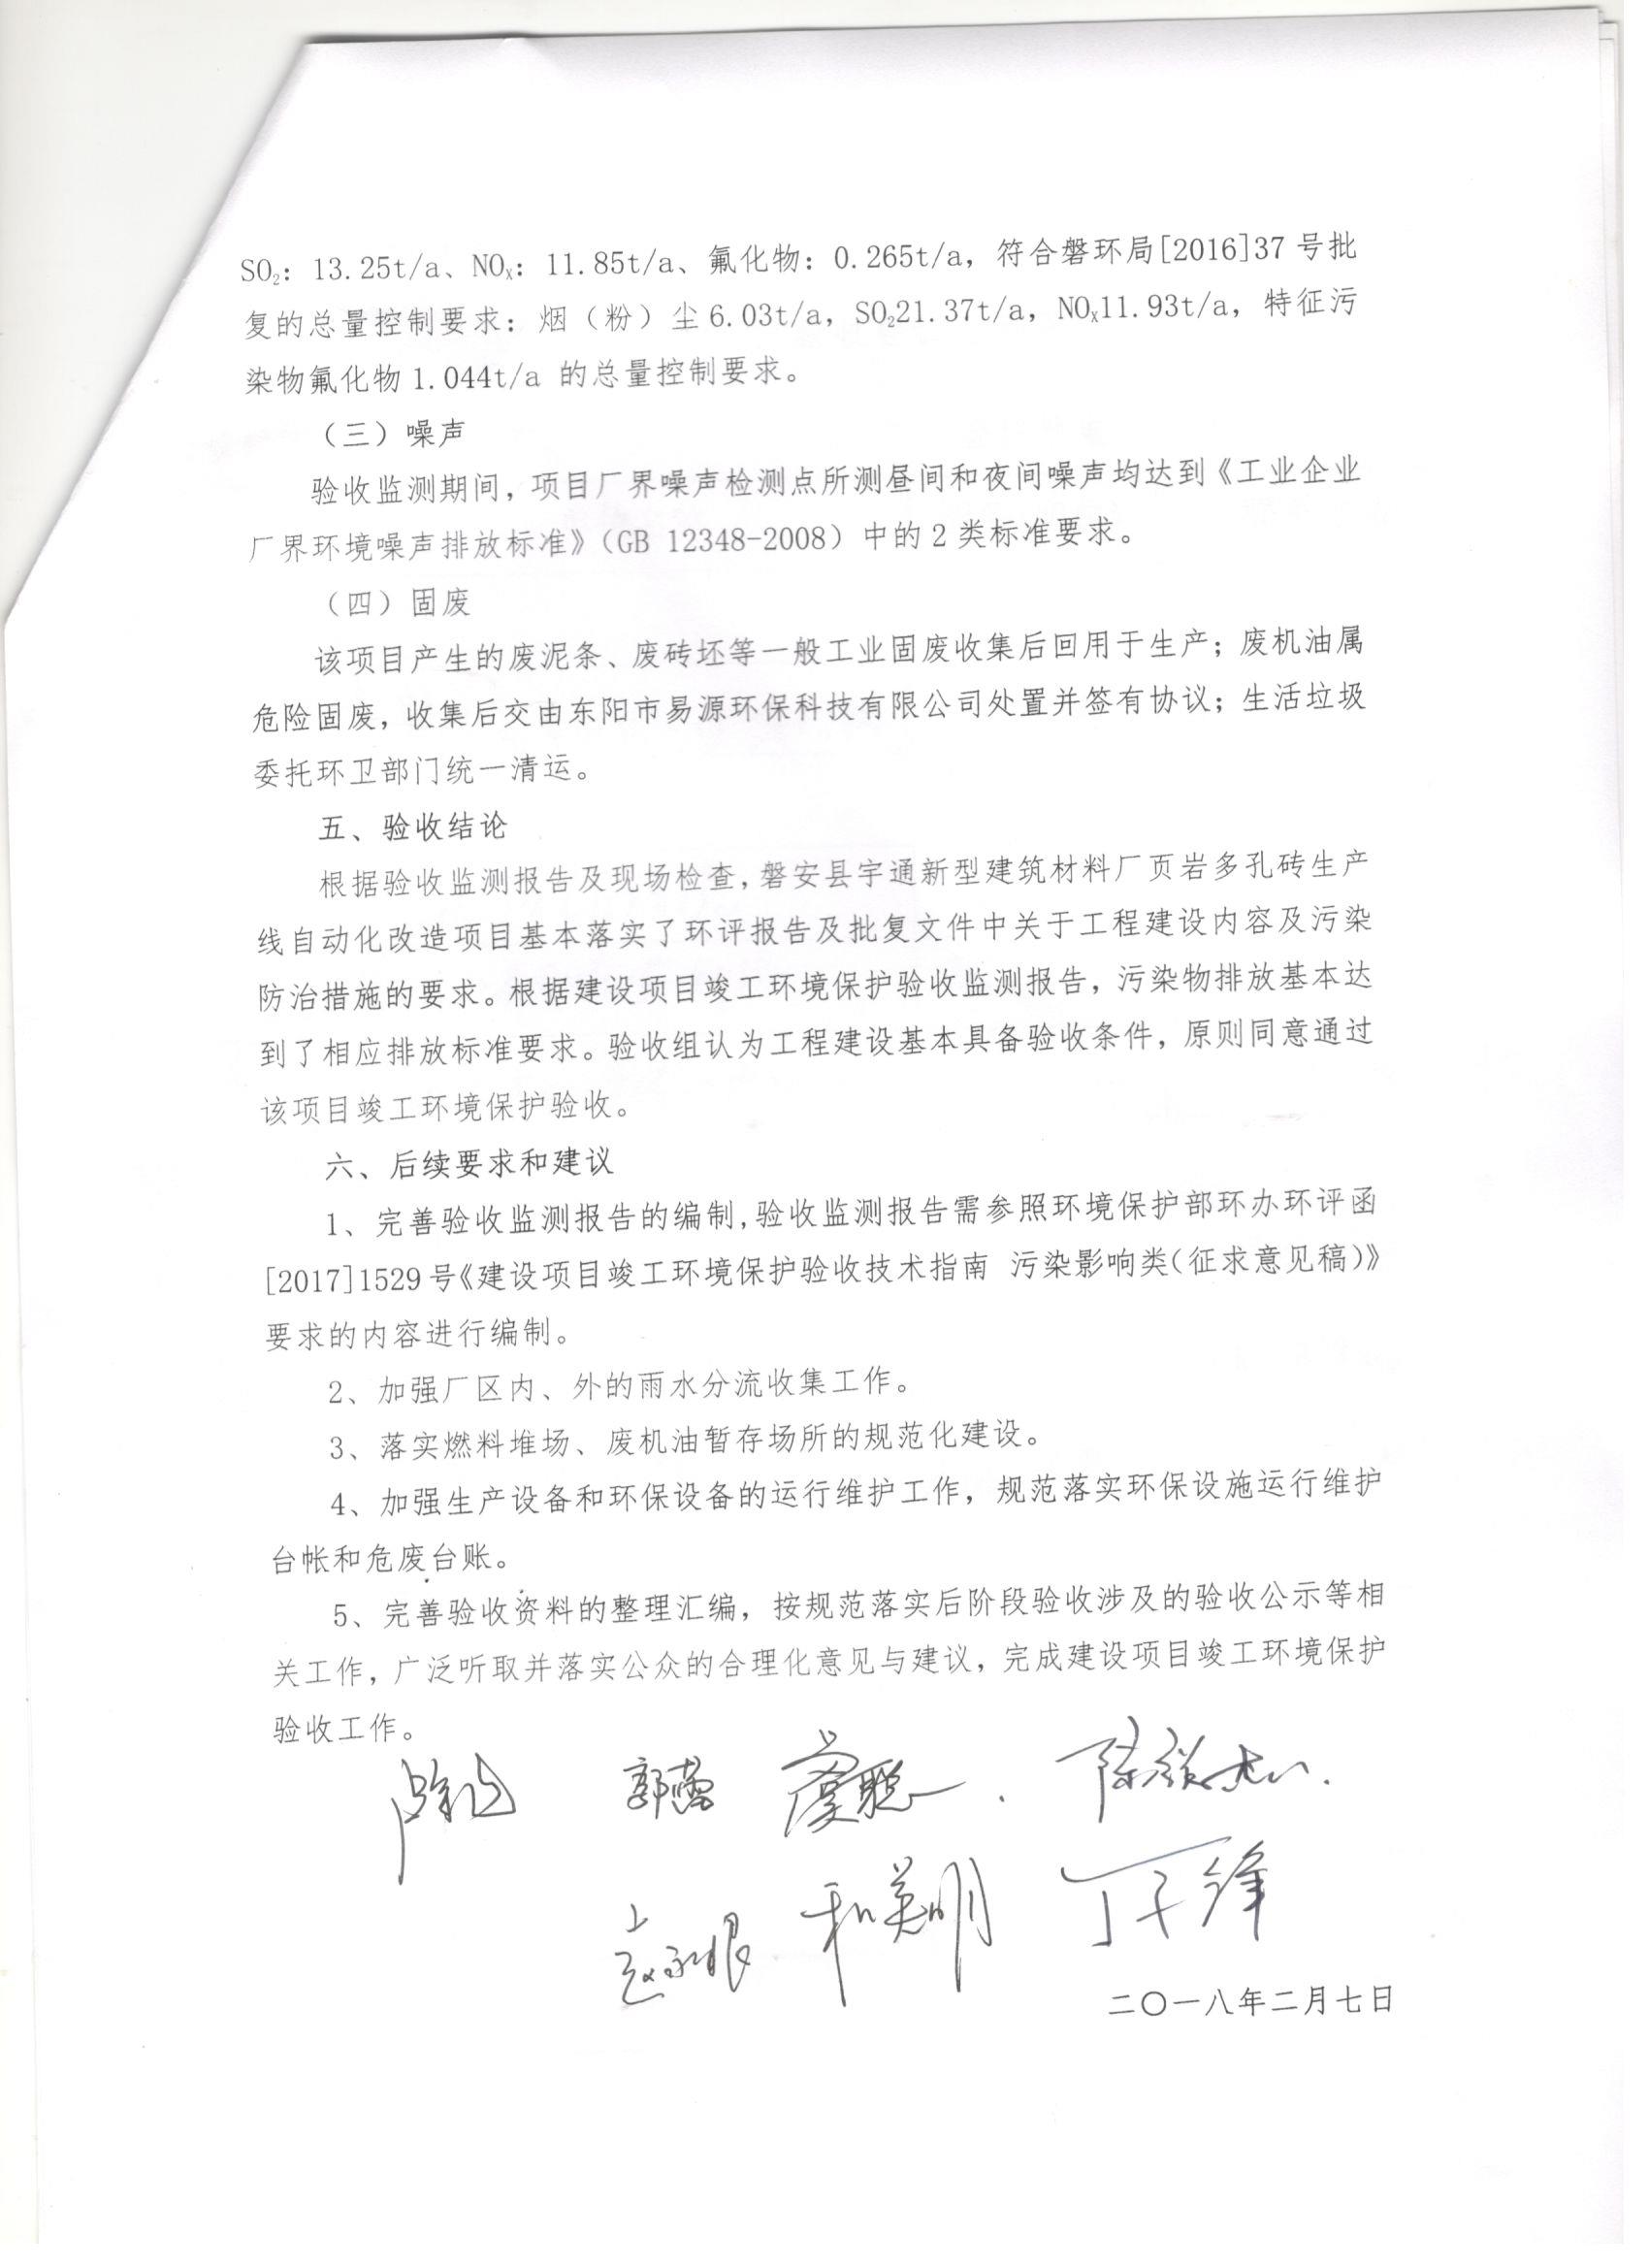 SO₂：13.25t/a、NOₓ：11.85t/a、氟化物：0.265t/a，符合磐环局[2016]37 号批
复的总量控制要求：烟（粉）尘 6.03t/a，SO₂21.37t/a，NOₓ11.93t/a，特征污
染物氟化物 1.044t/a 的总量控制要求。
（三）噪声
验收监测期间，项目厂界噪声检测点所测昼间和夜间噪声均达到《工业企业
厂界环境噪声排放标准》（GB 12348-2008）中的 2 类标准要求。
（四）固废
该项目产生的废泥条、废砖坯等一般工业固废收集后回用于生产；废机油属
危险固废，收集后交由东阳市易源环保科技有限公司处置并签有协议；生活垃圾
委托环卫部门统一清运。
五、验收结论
根据验收监测报告及现场检查，磐安县宇通新型建筑材料厂页岩多孔砖生产
线自动化改造项目基本落实了环评报告及批复文件中关于工程建设内容及污染
防治措施的要求。根据建设项目竣工环境保护验收监测报告，污染物排放基本达
到了相应排放标准要求。验收组认为工程建设基本具备验收条件，原则同意通过
该项目竣工环境保护验收。
六、后续要求和建议
1、完善验收监测报告的编制，验收监测报告需参照环境保护部环办环评函
[2017]1529 号《建设项目竣工环境保护验收技术指南 污染影响类（征求意见稿）》
要求的内容进行编制。
2、加强厂区内、外的雨水分流收集工作。
3、落实燃料堆场、废机油暂存场所的规范化建设。
4、加强生产设备和环保设备的运行维护工作，规范落实环保设施运行维护
台帐和危废台账。
5、完善验收资料的整理汇编，按规范落实后阶段验收涉及的验收公示等相
关工作，广泛听取并落实公众的合理化意见与建议，完成建设项目竣工环境保护
验收工作。
二〇一八年二月七日